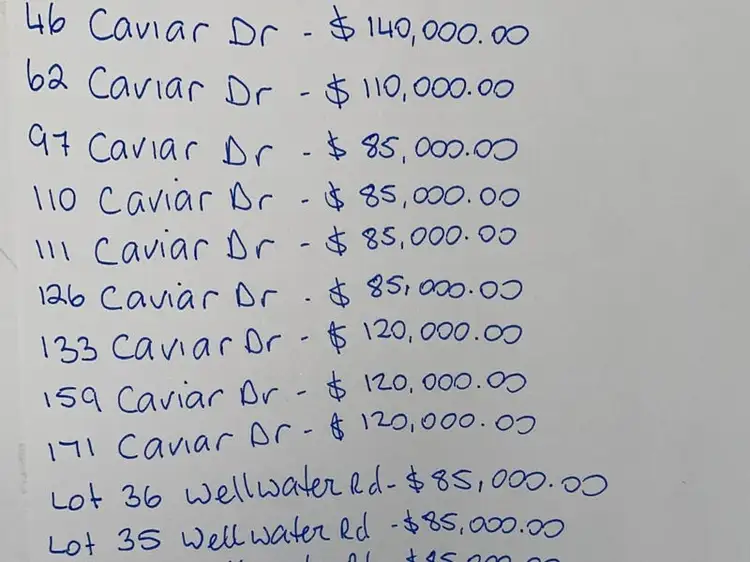 46 Caviar Dr - $ 140,000.00
62 Caviar Dr - $ 110,000.00
97 Caviar Dr - $ 85,000.00
110 Caviar Dr - $ 85,000.00
111 Caviar Dr - $ 85,000.00
126 Caviar Dr - $ 85,000.00
133 Caviar Dr - $ 120,000.00
159 Caviar Dr - $ 120,000.00
171 Caviar Dr - $ 120,000.00
Lot 36 Wellwater Rd - $85,000.00
Lot 35 Wellwater Rd - $85,000.00